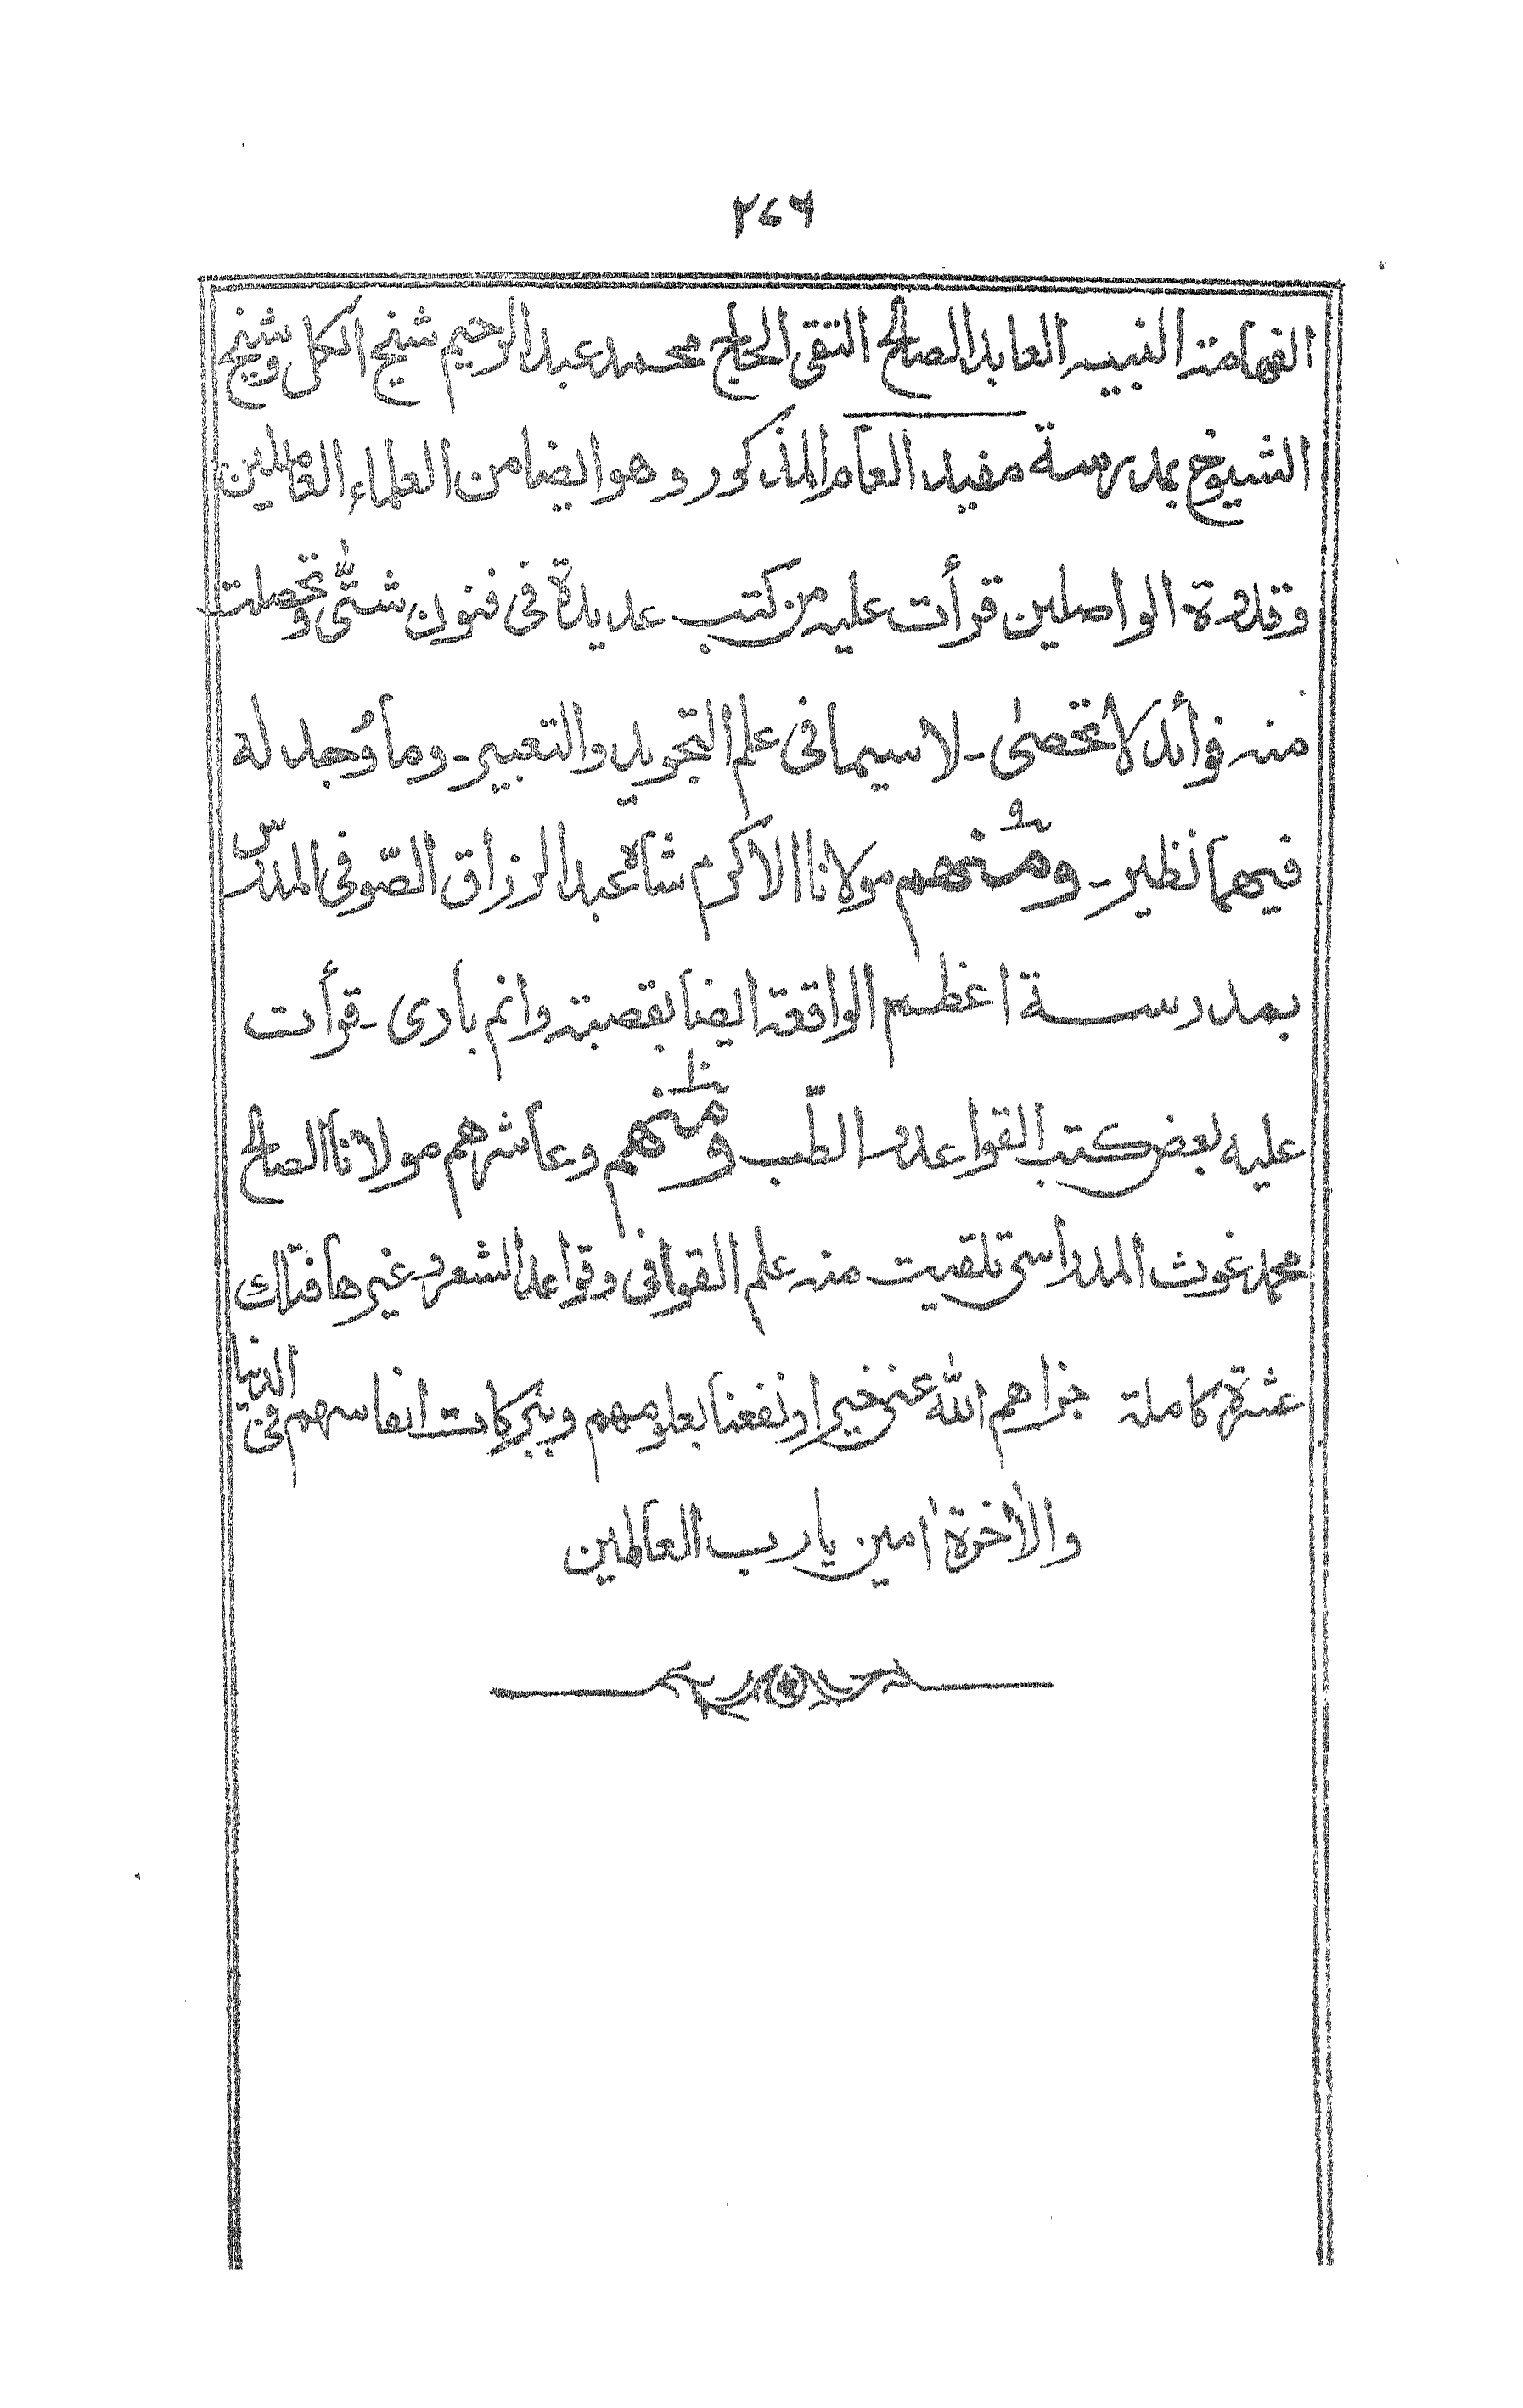 ٢٤٦
الفهامة النبيه العابد الصالح التقى الحاج محمد عبد الرحيم شيخ الكل وشيخ
الشيوخ بمدرسة مفيد العام المذكور وهو ايضا من العلماء العاملين
وقدوة الواصلين قرأت عليه من كتب عديدة فى فنون شتّٰى وتحصلت
منه فوائد لا تحصىٰ ـ لا سيما فى علم التجويد والتعبير ـ وما وُجد له
فيهما نظير ـ ومنهم مولانا الاكرم شاه عبد الرزاق الصّوفى المدرّس
بمدرسة اعظم الواقعة ايضا بقصبة وانم بادى ـ قرأت
عليه بعض كتب القواعد والطّب ومنهم وعاشرهم مولانا الصالح
محمد غوث المدراسى تلقيت منه علم القوافى وقواعد الشعر وغيرها فتلك
عشرة كاملة جزاهم الله عنى خيرا ونفعنا بعلومهم وببركات انفاسهم فى الدنيا
والاٰخرة اٰمين يارب العالمين